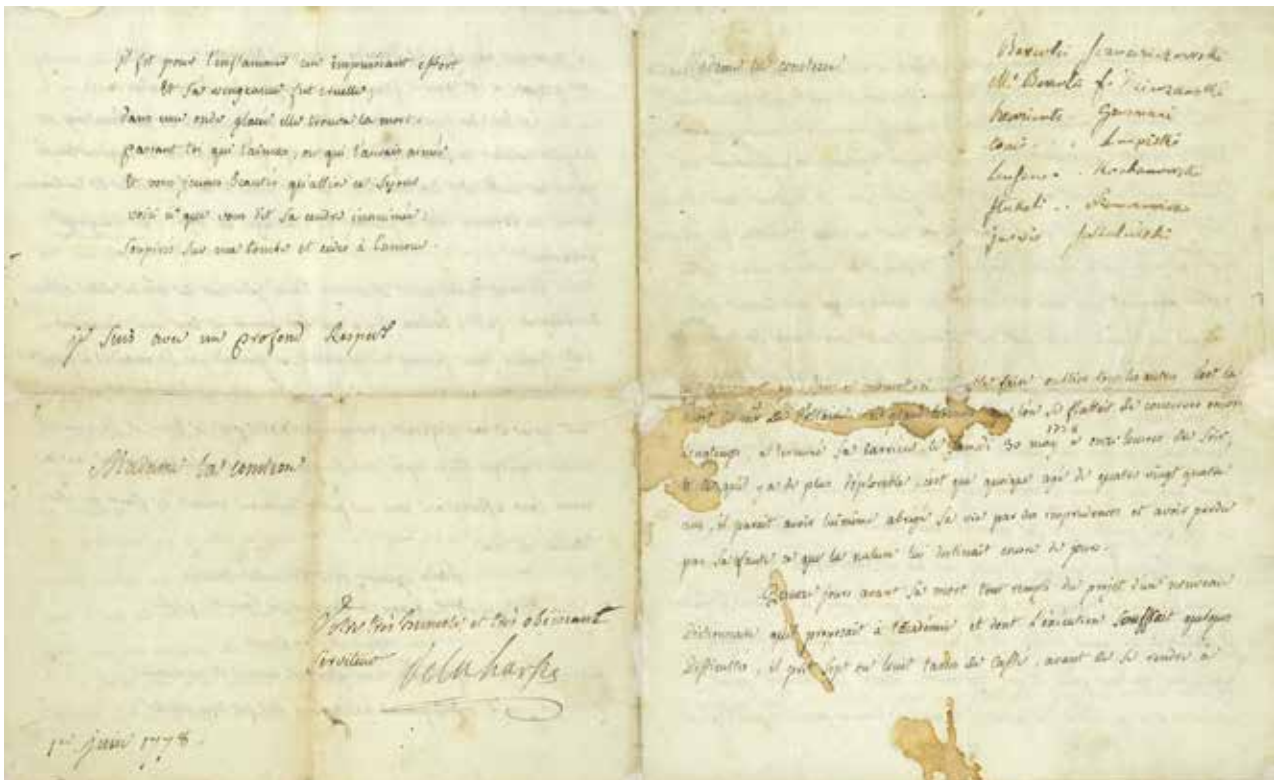 il fit pour l'enflammer un impuissant effort
Et sa vengeance fut cruelle;
dans une onde glacée elle trouva la mort.
passant toi qui l'aimes, ou qui l'aurais aimée
Et vous jeunes beautés qu'attire ce séjour
voici ce que vous dit sa cendre inanimée:
soupirez sur ma tombe et cédez à l'amour.
je suis avec un profond Respect
Madame la comtesse
Votre très humble et très obéissant
serviteur
Delaharpe
1er juin 1778.
Madame la comtesse
Henriette
ce moment ci faire oublier tous les autres. c'est la
mort de Voltaire. ce grand l'on se flattait de conserver encore
longtemps, a terminé sa carrière le samedi 30 may 1778 à onze heures du soir,
ce qu'il y a de plus déplorable, c'est que quoique agé de quatre vingt quatre
ans, il parait avoir luimême abregé sa vie par des imprudences et avoir perdu
par sa faute ce que la nature lui destinait encore de jours.
Quinze jours avant sa mort tout rempli du projet d'un nouveau
Dictionnaire qu'il proposait à l'académie et dont l'exécution souffrait quelques
difficultés, il prit sept ou huit tasses de caffé, avant de se rendre à